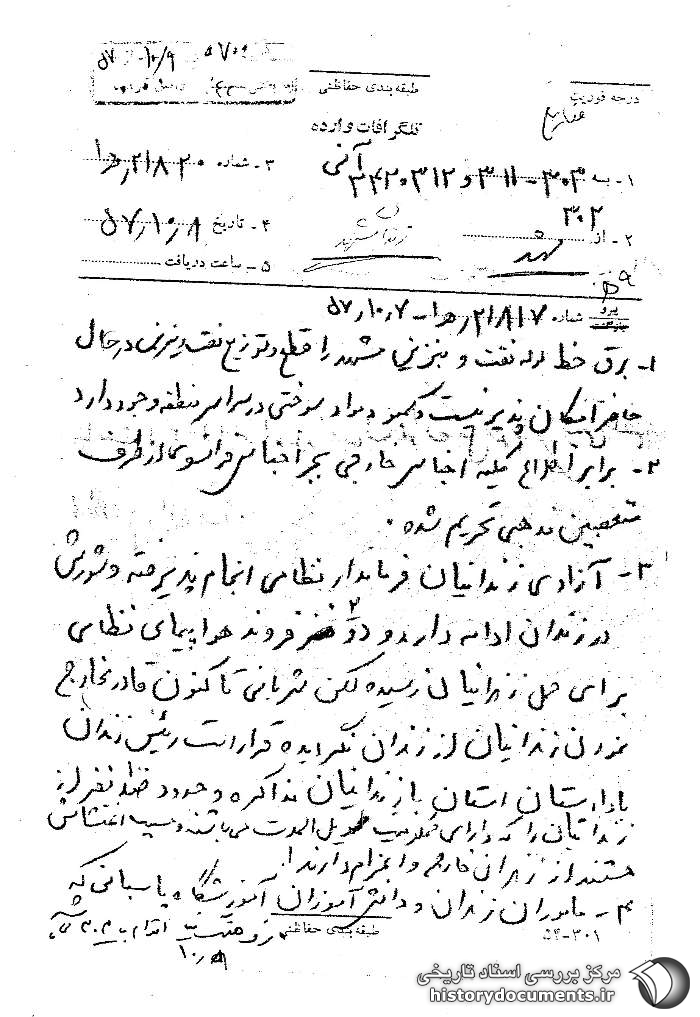 ۵۷۰۹
۵۷/۱۰/۹
درجه فوریت
طبقه بندی حفاظتی
تلگرافات وارده
آنی
۱- به ۳۰۳-۳۱۱ و ۳۱۲ ۳۴۲۰
۳- شماره ۲۱۸۲۰/ﻫ۱
۳۰۲
۲- از مشهد
۴- تاریخ ۵۷/۱۰/۸
زندان مشهد
۵- ساعت دریافت
پیرو شماره ۲۱۸۱۷/ﻫ۱-۵۷/۱۰/۷
۱- برق خط لوله نفت و بنزین مشهد را قطع و توزیع نفت و بنزین در حال
حاضر امکان پذیر نیست و کمبود مواد سوختی در سراسر منطقه وجود دارد
۲- برابر اطلاع کلیه اجناس خارجی بجز اجناس فرانسوی از طرف
متعصبین مذهبی تحریم شده.
۳- آزادی زندانیان فرماندار نظامی انجام پذیرفته و شورش
در زندان ادامه دارد و دو فروند هواپیمای نظامی
برای حمل زندانیان رسیده لکن شهربانی تاکنون قادر بخارج
نمودن زندانیان از زندان نگردیده قرار است رئیس زندان
با دادستان استان با زندانیان مذاکره و حدود نفر از
زندانیان را که دارای محکومیت طویل المدت می باشند و مسبب اغتشاش
هستند از زندان خارج و اعزام دارند.
۴- ماموران زندان و دانش آموزان آموزشگاه پاسبانی که
طبقه بندی حفاظتی
۵۴-۳۰۱
اقدام با ۳۰۲
۱۰/۹
مرکز بررسی اسناد تاریخی
historydocuments.ir